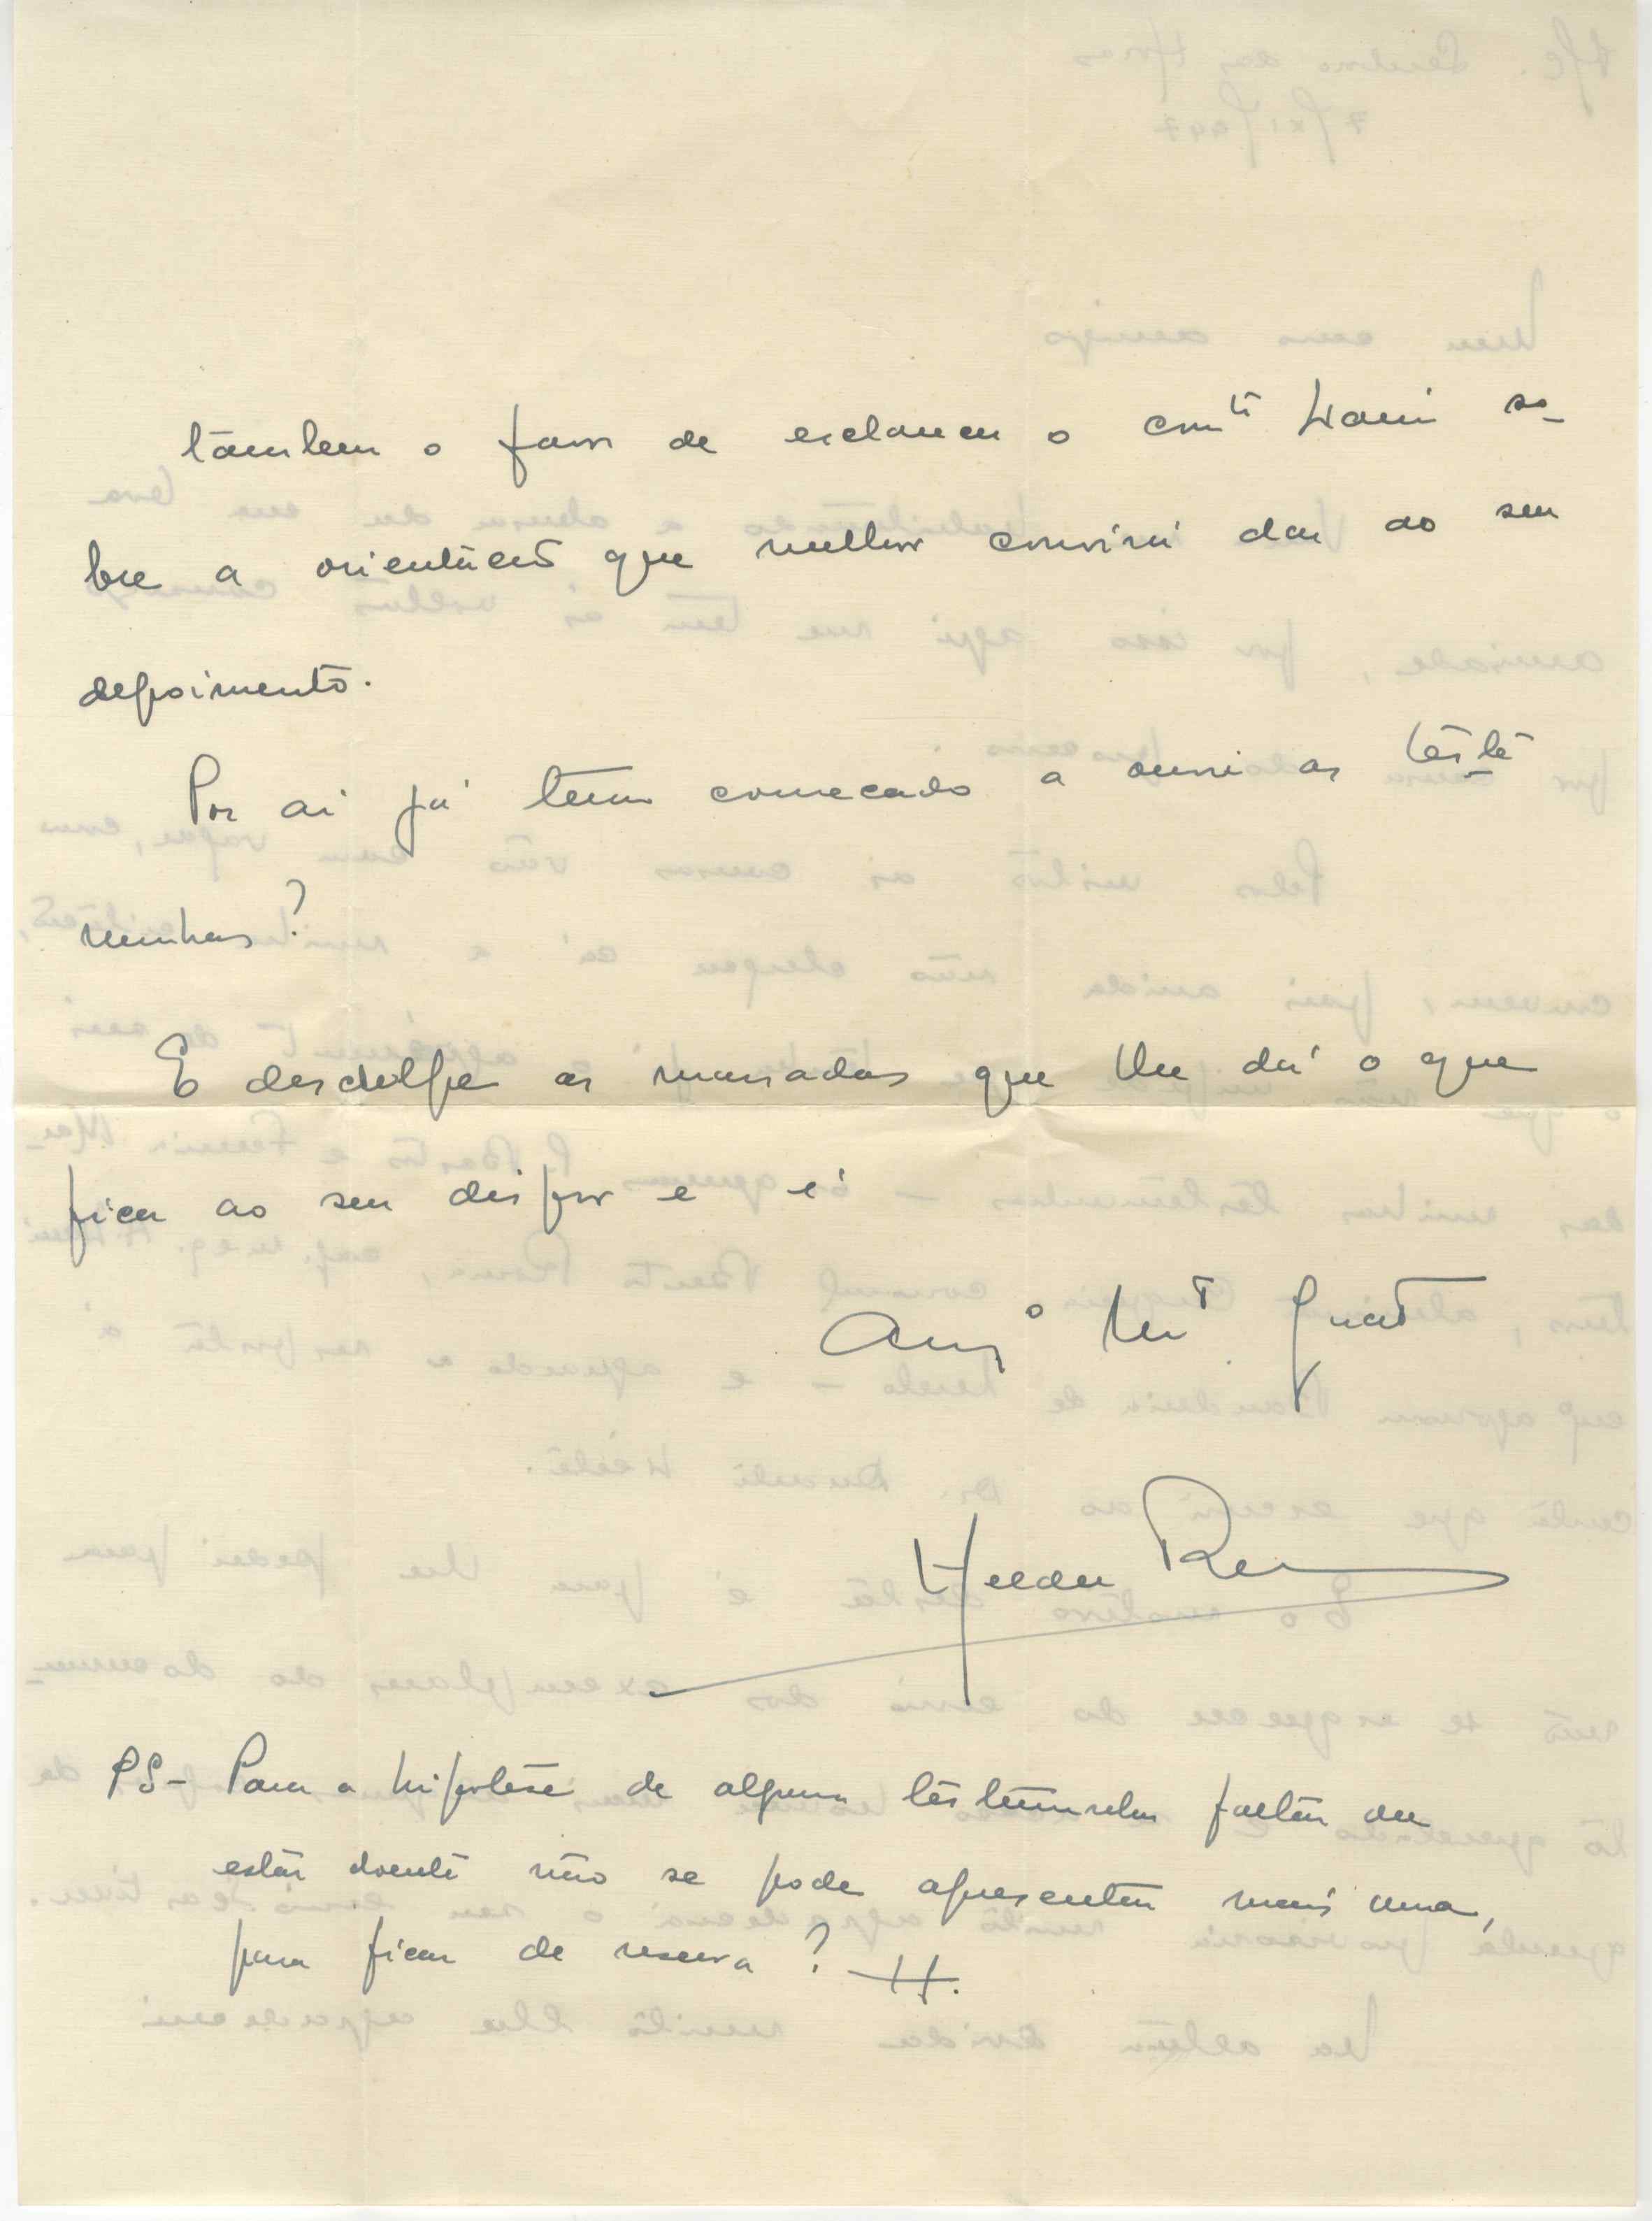 também o favor de esclarecer o com.te so-
bre a orientação que melhor convirá dar ao seu
depoimento.
Por aí já tem começado a ouvir as téste
munhas?
E desculpe as massadas que lhe dá o que
fica ao seu dispor e é
Am.º Mt.º Grato
Helder R
PS - Para a hipótese de alguma testemunha faltar ou
estar doente não se pode apresentar mais uma,
para ficar de reserva? H.